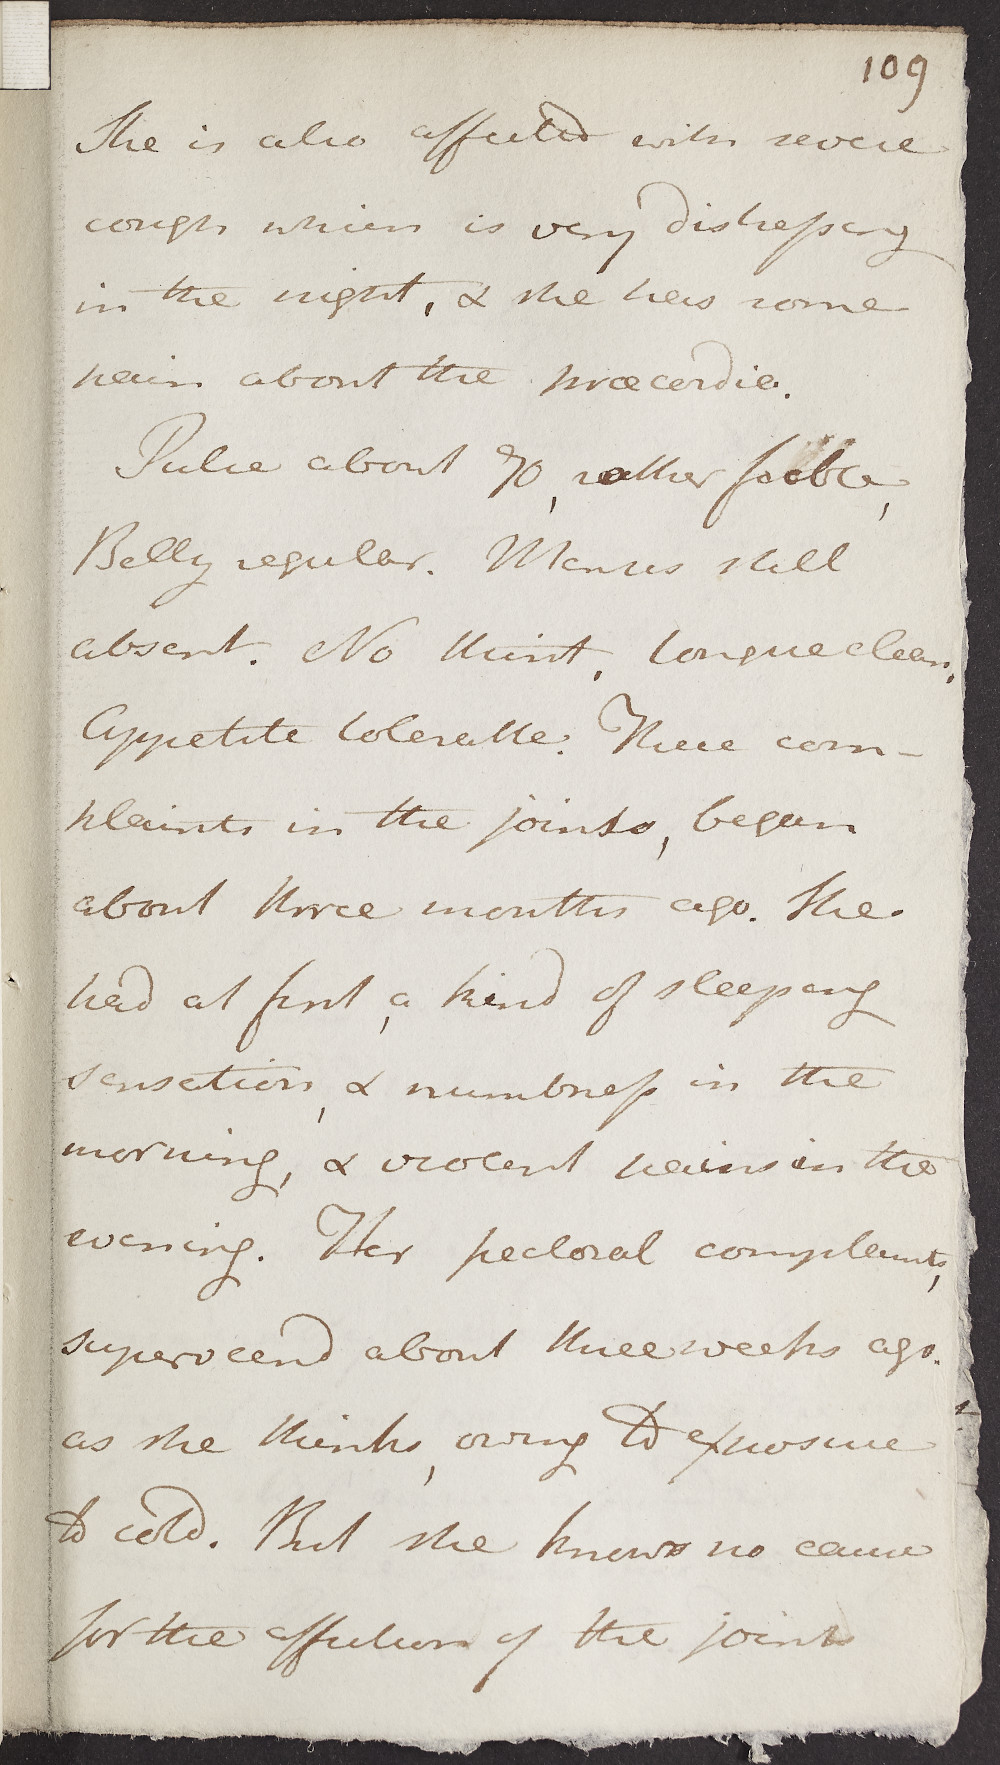 109
She is also affected with severe
cough which is very distressing
in the night, & she has some
pain about the præcordia.
Pulse about 70, rather feeble,
Belly regular. Menses still
absent. No thirst, tongue clean,
Appetite tolerable. These com-
plaints in the joints, began
about three months ago. She
had at first, a kind of sleeping
sensation, & numbness in the
morning, & violent pains in the
evening. Her pectoral complaints,
supervened about three weeks ago.
as she thinks, owing to exposure
to cold. But she knows no cause
for the affection of the joints